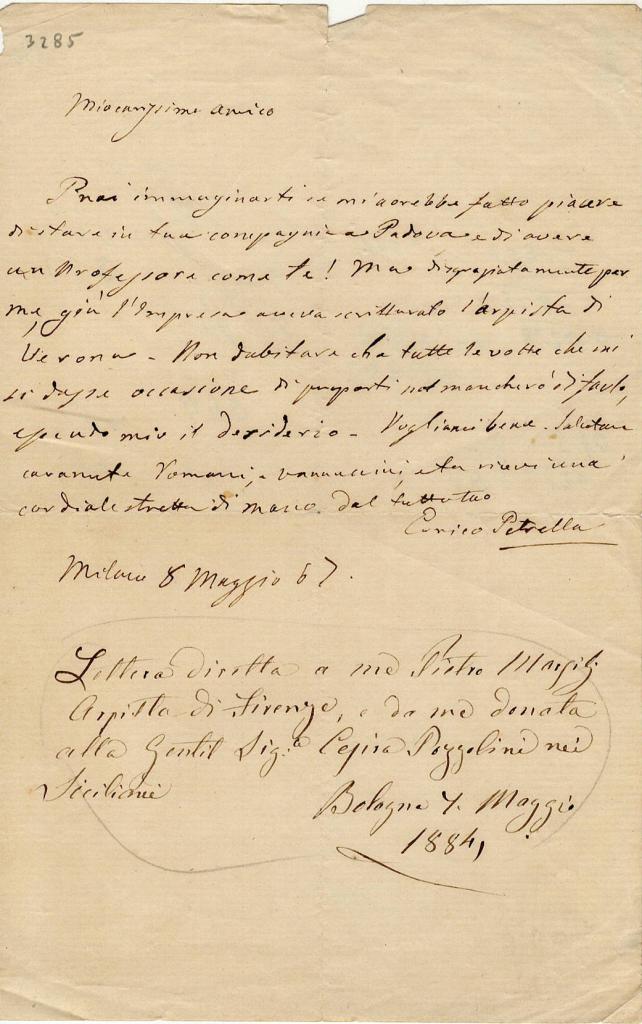 3285
Mio carissimo amico
Puoi immaginarti se mi avrebbe fatto piacere
di stare in tua compagnia a Padova e di avere
un Professore come te! Ma disgraziatamente per
me, già l'Impresa aveva scritturato l'arpista di
Verona - Non dubitare che tutte le volte che mi
si dasse occasione di proporti non mancherò di farlo,
essendo mio il desiderio - Vogliami bene - Salutami
caramente Romani, e Vannuccini, e tu ricevi una
cordiale stretta di mano dal tutto tuo
Enrico Petrella
Milano 8 Maggio 67.
Lettera diretta a me Pietro
Arpista di Firenze, e da me donata
alla Gentil Sig.a Poggolini nei
Siciliani
Bologna 7. Maggio
1884,